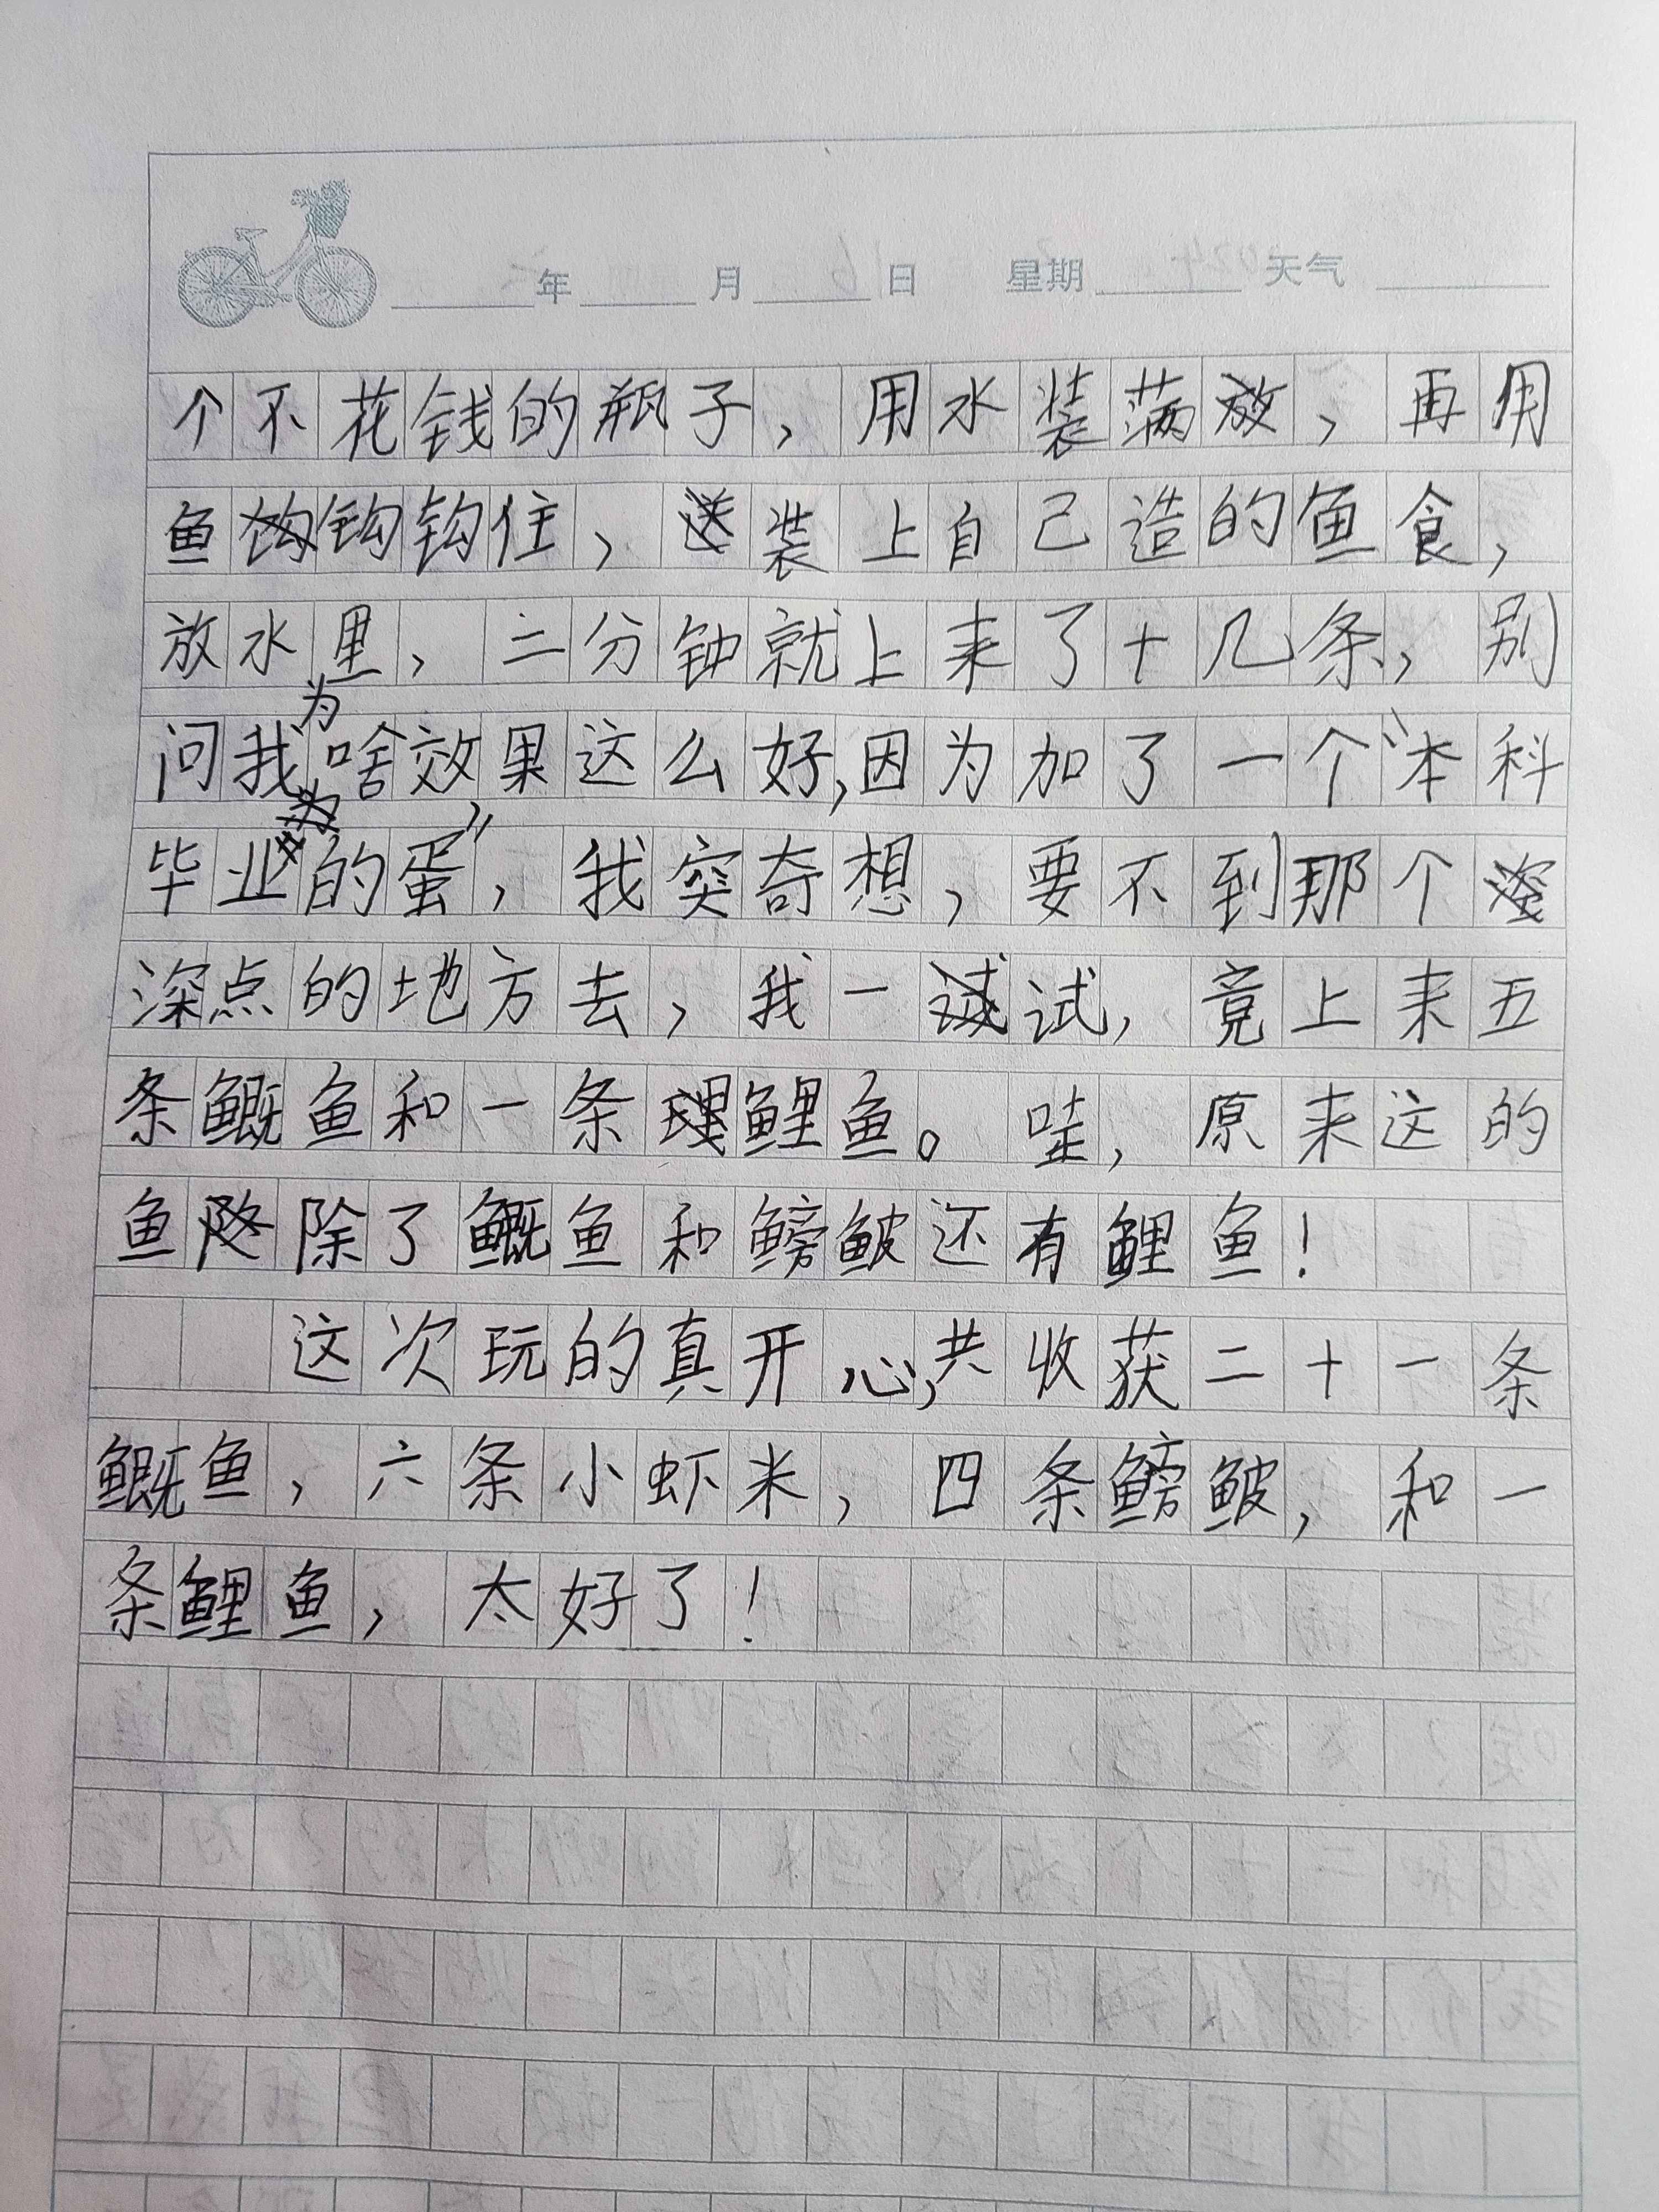 年 月 日 星期 天气
个不花钱的瓶子，用水装满，再用
鱼钩钩住，装上自己造的鱼食，
放水里，二分钟就上来了十几条，别
问我为啥效果这么好，因为加了一个“本科
毕业的蛋”，我突奇想，要不到那个
深点的地方去，我一试，竟上来五
条鱼和一条鲤鱼。哇，原来这的
鱼除了鱼和鳑鲏还有鲤鱼！
这次玩的真开心，共收获二十一条
鱼，六条小虾米，四条鳑鲏，和一
条鲤鱼，太好了！